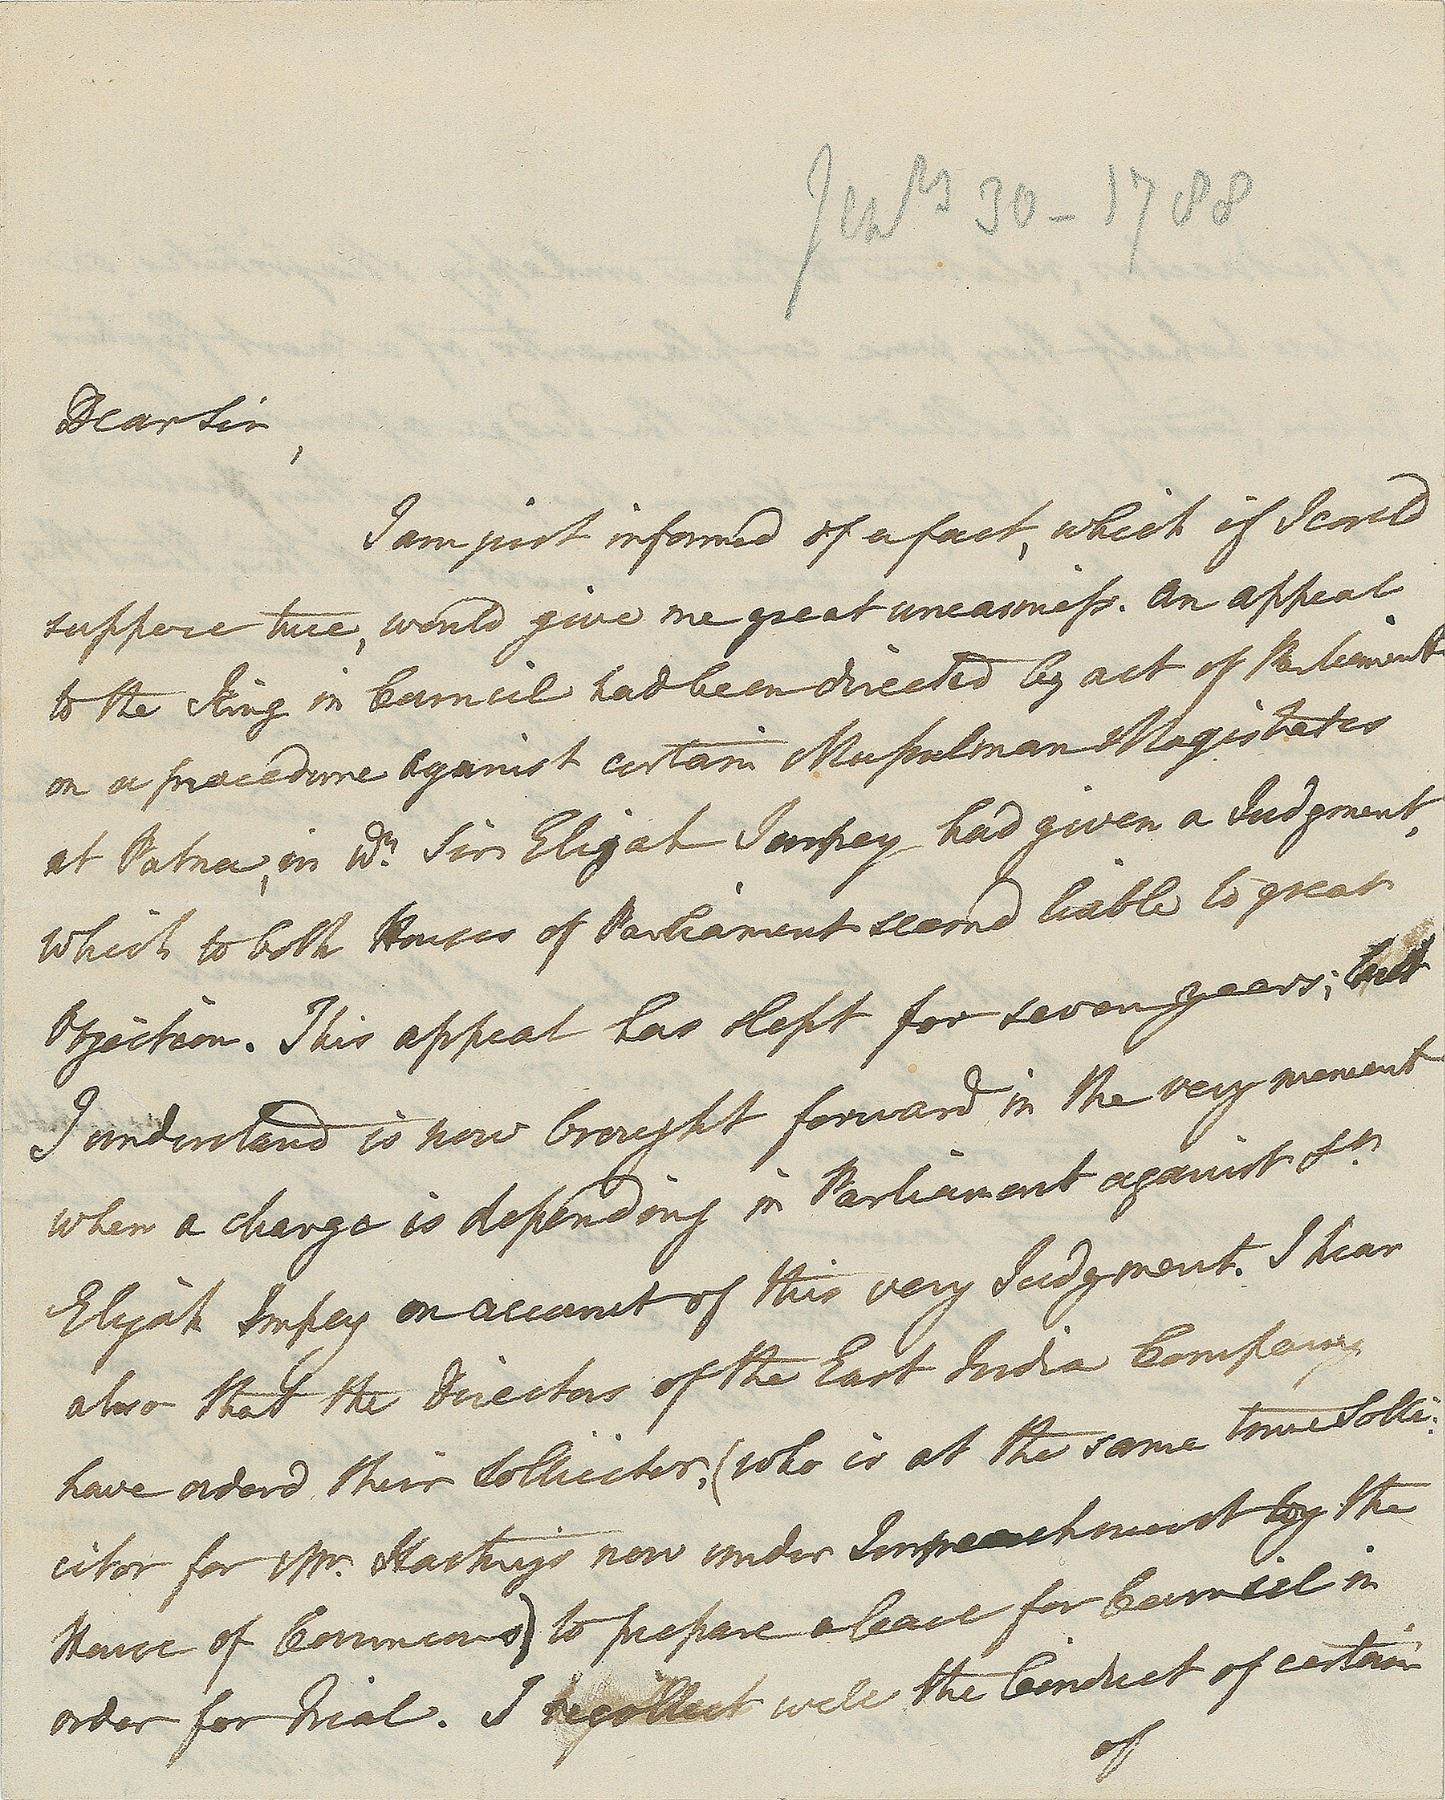 30 - 1788
Dear Sir,
I am just informed of a fact, which if I could
suppose true, would give me great uneasiness. An appeal
to the King in Council had been directed by act of Parliament
on a procedure against certain Mussulman Magistrates
at Patna, in wch Sir Elijah Impey had given a Judgment,
which to both Houses of Parliament seemd liable to great
Objection. This appeal has slept for seven years; but
I understand is now brought forward in the very moment
when a charge is depending in Parliament against Sr
Elijah Impey on account of this very Judgment. I hear
also that the Directors of the East India Company
have orderd their Sollicitor, (who is at the same time Solli-
citor for Mr. Hastings now under Impeachment by the
House of Commons) to prepare a Case for Council in
order for Trial. I recollect well the Conduct of certain
of